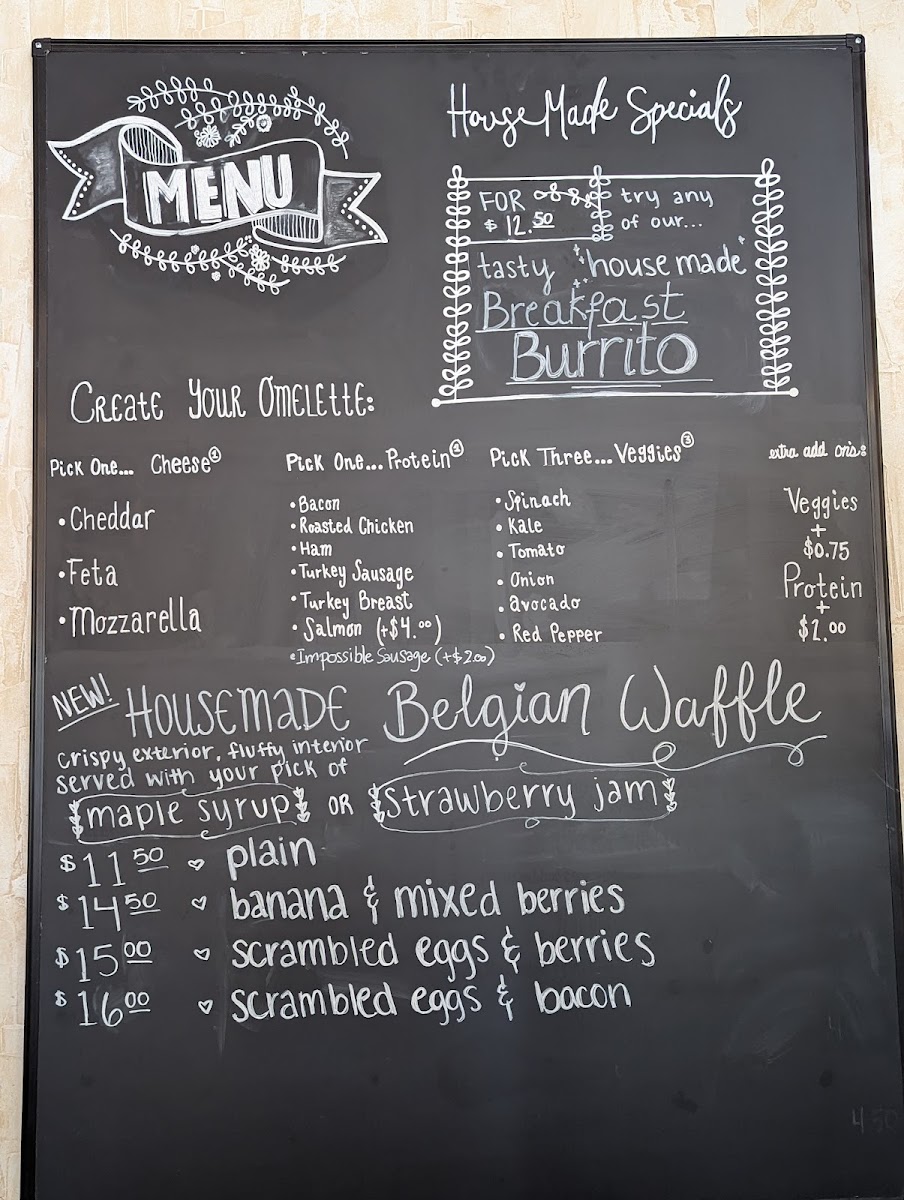 MENU
House Made Specials
FOR
$12.50
try any
of our...
tasty house made
Breakfast
Burrito
Create Your Omelette:
Pick One... Cheese①
• Cheddar
• Feta
• Mozzarella
Pick One... Protein②
• Bacon
• Roasted Chicken
• Ham
• Turkey Sausage
• Turkey Breast
• Salmon (+$4.00)
• Impossible Sausage (+$2.00)
Pick Three... Veggies③
• Spinach
• Kale
• Tomato
• Onion
• avocado
• Red Pepper
extra add on's:
Veggies
+
$0.75
Protein
+
$2.00
NEW! Housemade Belgian Waffle
crispy exterior, fluffy interior
served with your pick of
maple syrup OR strawberry jam
$11.50 plain
$14.50 banana & mixed berries
$15.00 scrambled eggs & berries
$16.00 scrambled eggs & bacon